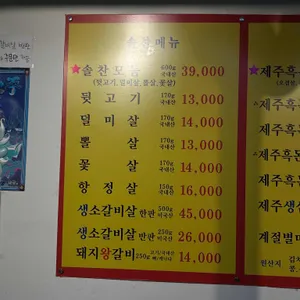 솔찬메뉴
★솔찬모듬 600g 국내산 39,000
(뒷고기, 덜미살, 뽈살, 꽃살)
뒷고기 170g 국내산 13,000
덜미살 170g 국내산 14,000
뽈살 170g 국내산 13,000
꽃살 170g 국내산 14,000
항정살 150g 국내산 16,000
생소갈비살 한판 500g 미국산 45,000
생소갈비살 반판 250g 미국산 26,000
돼지왕갈비 250g 14,000
★제주흑
제주흑
제주
제주흑
제주
제주생
계절별미
원산지